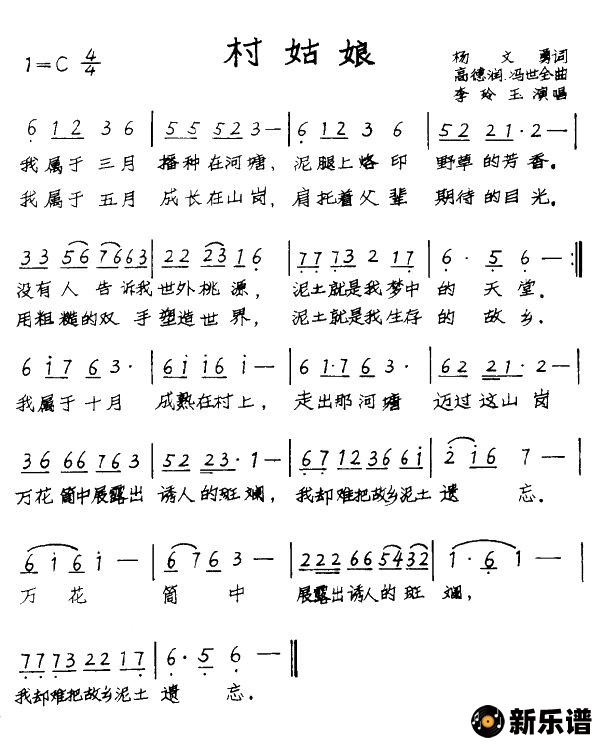 村姑娘
1=C 4/4
杨文勇词
高德润.冯世全曲
李玲玉演唱
6 12 3 6 | 55 52 3 — | 6 12 3 6 | 52 21·2 — |
我属于三月 播种在河塘，泥腿上烙印 野草的芳香。
我属于五月 成长在山岗，肩托着父辈 期待的目光。
33 56 7663 | 22 231 6 | 77 732 17 | 6· 5 6 — :||
没有人告诉我世外桃源，泥土就是我梦中的天堂。
用粗糙的双手塑造世界，泥土就是我生存的故乡。
6 i7 6 3· | 6i i6 i — | 6 i·76 3· | 62 22 21·2 — |
我属于十月 成熟在村上，走出那河塘 迈过这山岗
36 66 76 3 | 52 23·1 — | 67 12 36 6i | 2 i6 7 — |
万花筒中展露出诱人的斑斓，我却难把故乡泥土遗忘。
6 i 6 i — | 6 76 3 — | 222 66 5432 | 1·6 1 — |
万花筒中展露出诱人的斑斓，
77 73 22 17 | 6·5 6 — ||
我却难把故乡泥土遗忘。
新乐谱